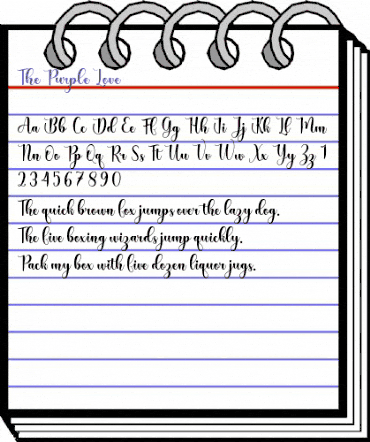 The Purple Love
Aa Bb Cc Dd Ee Ff Gg Hh Ii Jj Kk Ll Mm
Nn Oo Pp Qq Rr Ss Tt Uu Vv Ww Xx Yy Zz 1
2 3 4 5 6 7 8 9 0
The quick brown fox jumps over the lazy dog.
The five boxing wizards jump quickly.
Pack my box with five dozen liquor jugs.